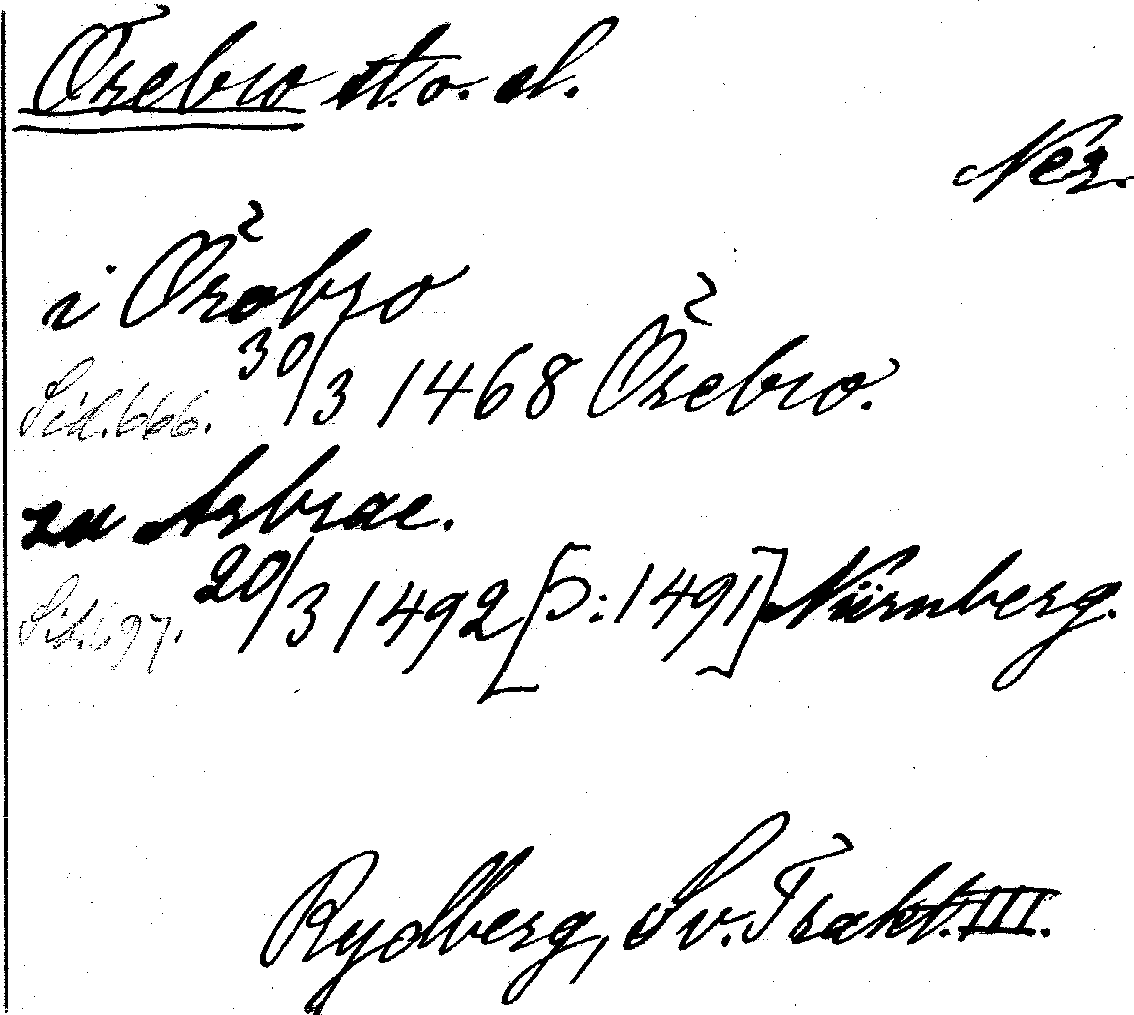 Örebro st. o. sl.
Ner.
i Örebro
Sid. 666. 30/3 1468 Örebro.
zu Arbrae.
Sid. 697. 20/3 1492 [Ɔ: 1491] Nürnberg.
Rydberg, Sv. Trakt. III.